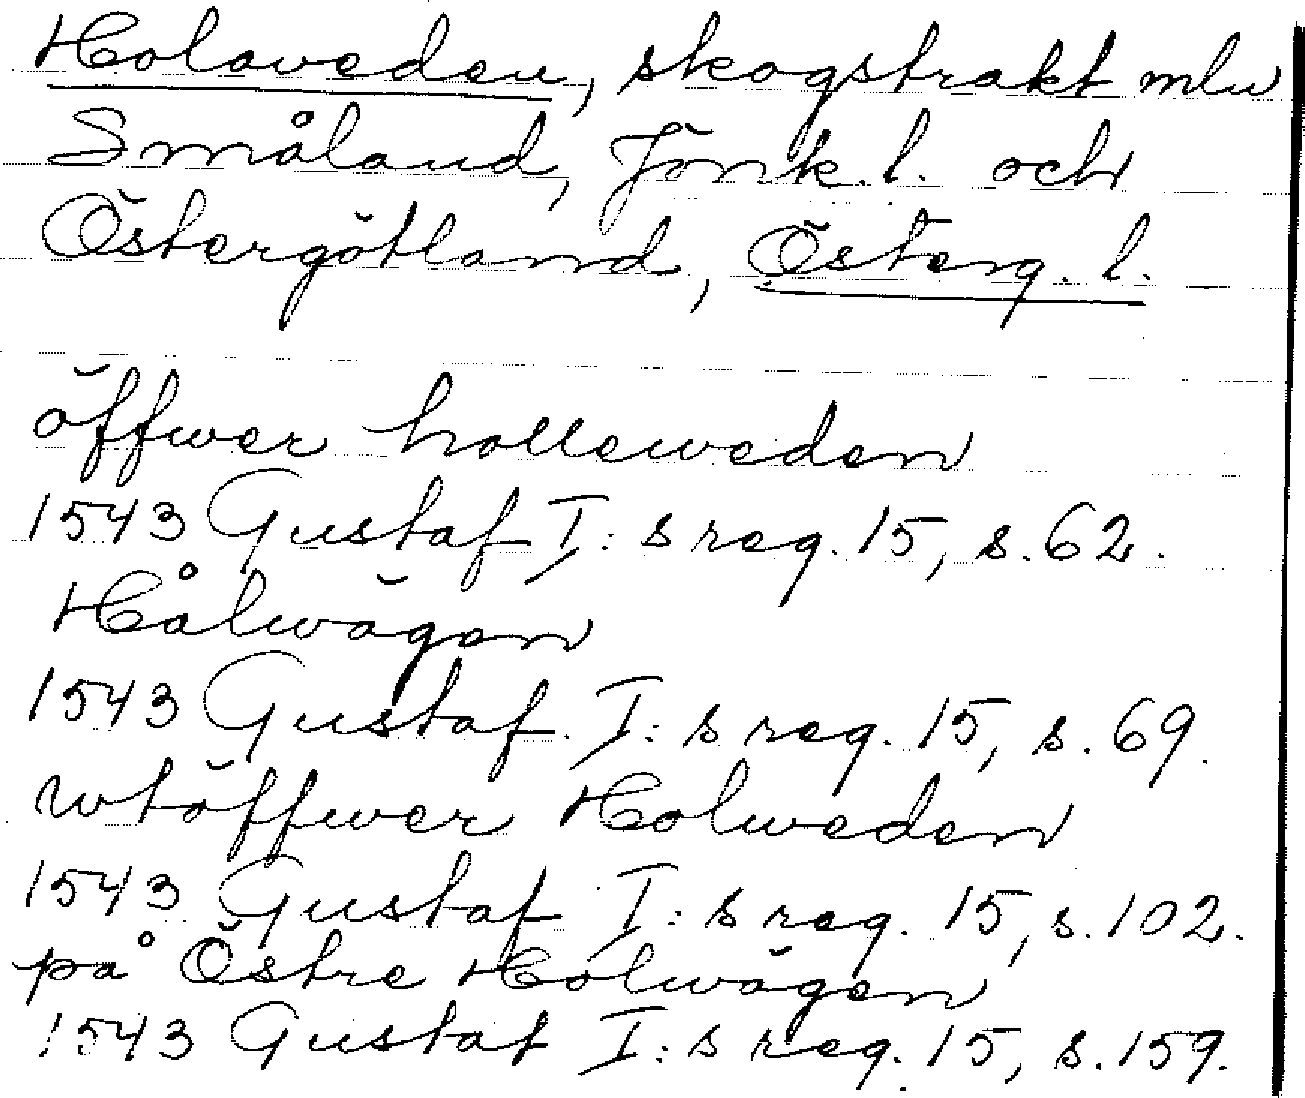 Holaveden, skogstrakt mln
Småland, Jönk. l. och
Östergötland, Österg. l.
öffwer holleweden
1543 Gustaf I:s reg. 15, s. 62.
Hålwägen
1543 Gustaf I:s reg. 15, s. 69.
wtöffwer Holweden
1543 Gustaf I:s reg. 15, s. 102.
på Östre Holwägen
1543 Gustaf I:s reg. 15, s. 159.